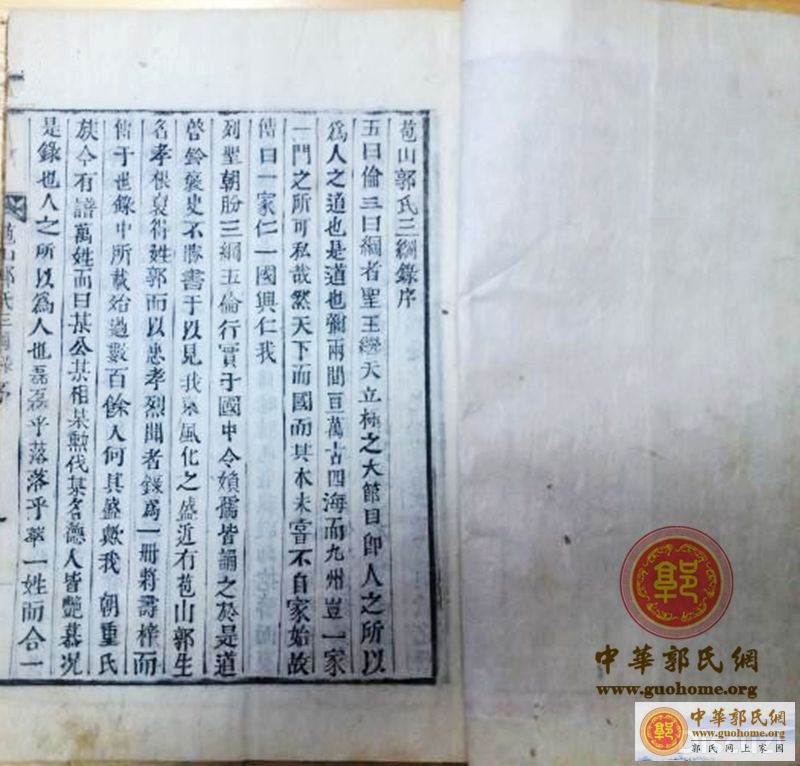 苞山郭氏三綱錄序
五曰倫三曰綱者聖王繼天立極之大節目即人之所以
爲人之道也是道也彌兩間亘萬古四海而九州豈一家
一門之所可私哉然天下而國而其本未嘗不自家始故
傳曰一家仁一國興仁我
列聖朝胗三綱五倫行實于國中令婦孺皆誦之於是道
啓鈴襲史不勝書于以見我東風化之盛近有苞山郭生
名孝根裒衙姓郭而以忠孝烈聞者錄爲一冊將壽梓而
傳于世錄中所載殆過數百餘人何其盛歟我 朝重氏
族今有譜萬姓而曰某公某相某勳伐某名德人皆艷慕况
是錄也人之所以爲人也磊磊乎落落乎萃一姓而合一
苞山郭氏三綱錄 序
郭
中華郭氏網
www.guohome.org
郭
中華郭氏網
www.guohome.org
郭氏网上家园